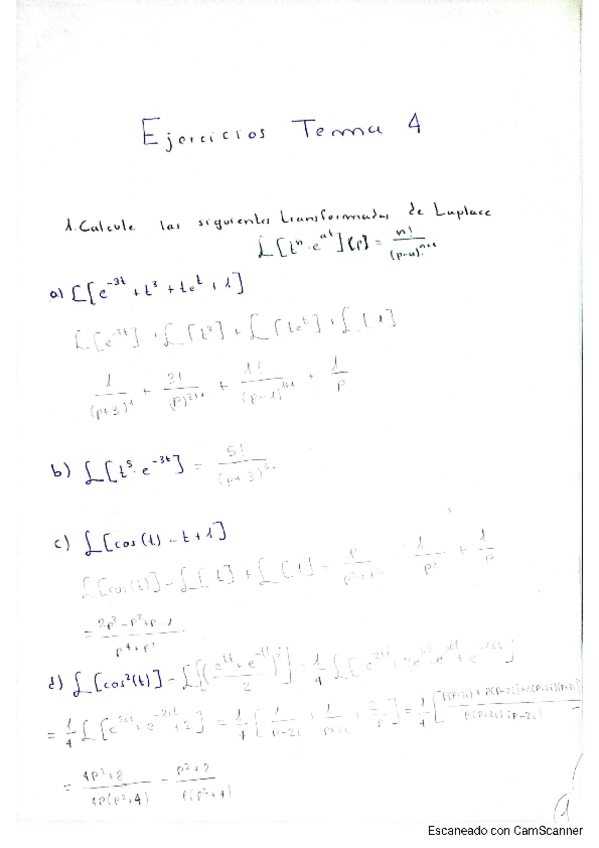 Ejercicios Tema 4
1. Calcule las siguientes transformadas de Laplace
ℒ[tⁿ·e^{at}](p) = n!/(p-a)^{n+1}
a) ℒ[e^{-3t} + t³ + te^t + 1]
ℒ[e^{-3t}] + ℒ[t³] + ℒ[te^t] + ℒ[1]
1/(p+3)^1 + 3!/(p)^{3+1} + 1!/(p-1)^{1+1} + 1/p
b) ℒ[t⁵·e^{-3t}] = 5!/(p+3)
c) ℒ[cos(t) - t + 1]
ℒ[cos(t)] - ℒ[t] + ℒ[1] = 1/p² + 1/p
= 2p³ - p² + p - 1 / p⁴ + p²
d) ℒ[cos²(t)] = ℒ[((e^{it} + e^{-it})/2)²] = 1/4 ℒ[
= 1/4 ℒ[e^{2it} + e^{-2it} + 2] = 1/4 [1/p-2i + 1/p+2i + 2/p] = 1/4 [
= 4p²+8 / 4p(p²+4) = p²+2 / p(p²+4)
1
Escaneado con CamScanner